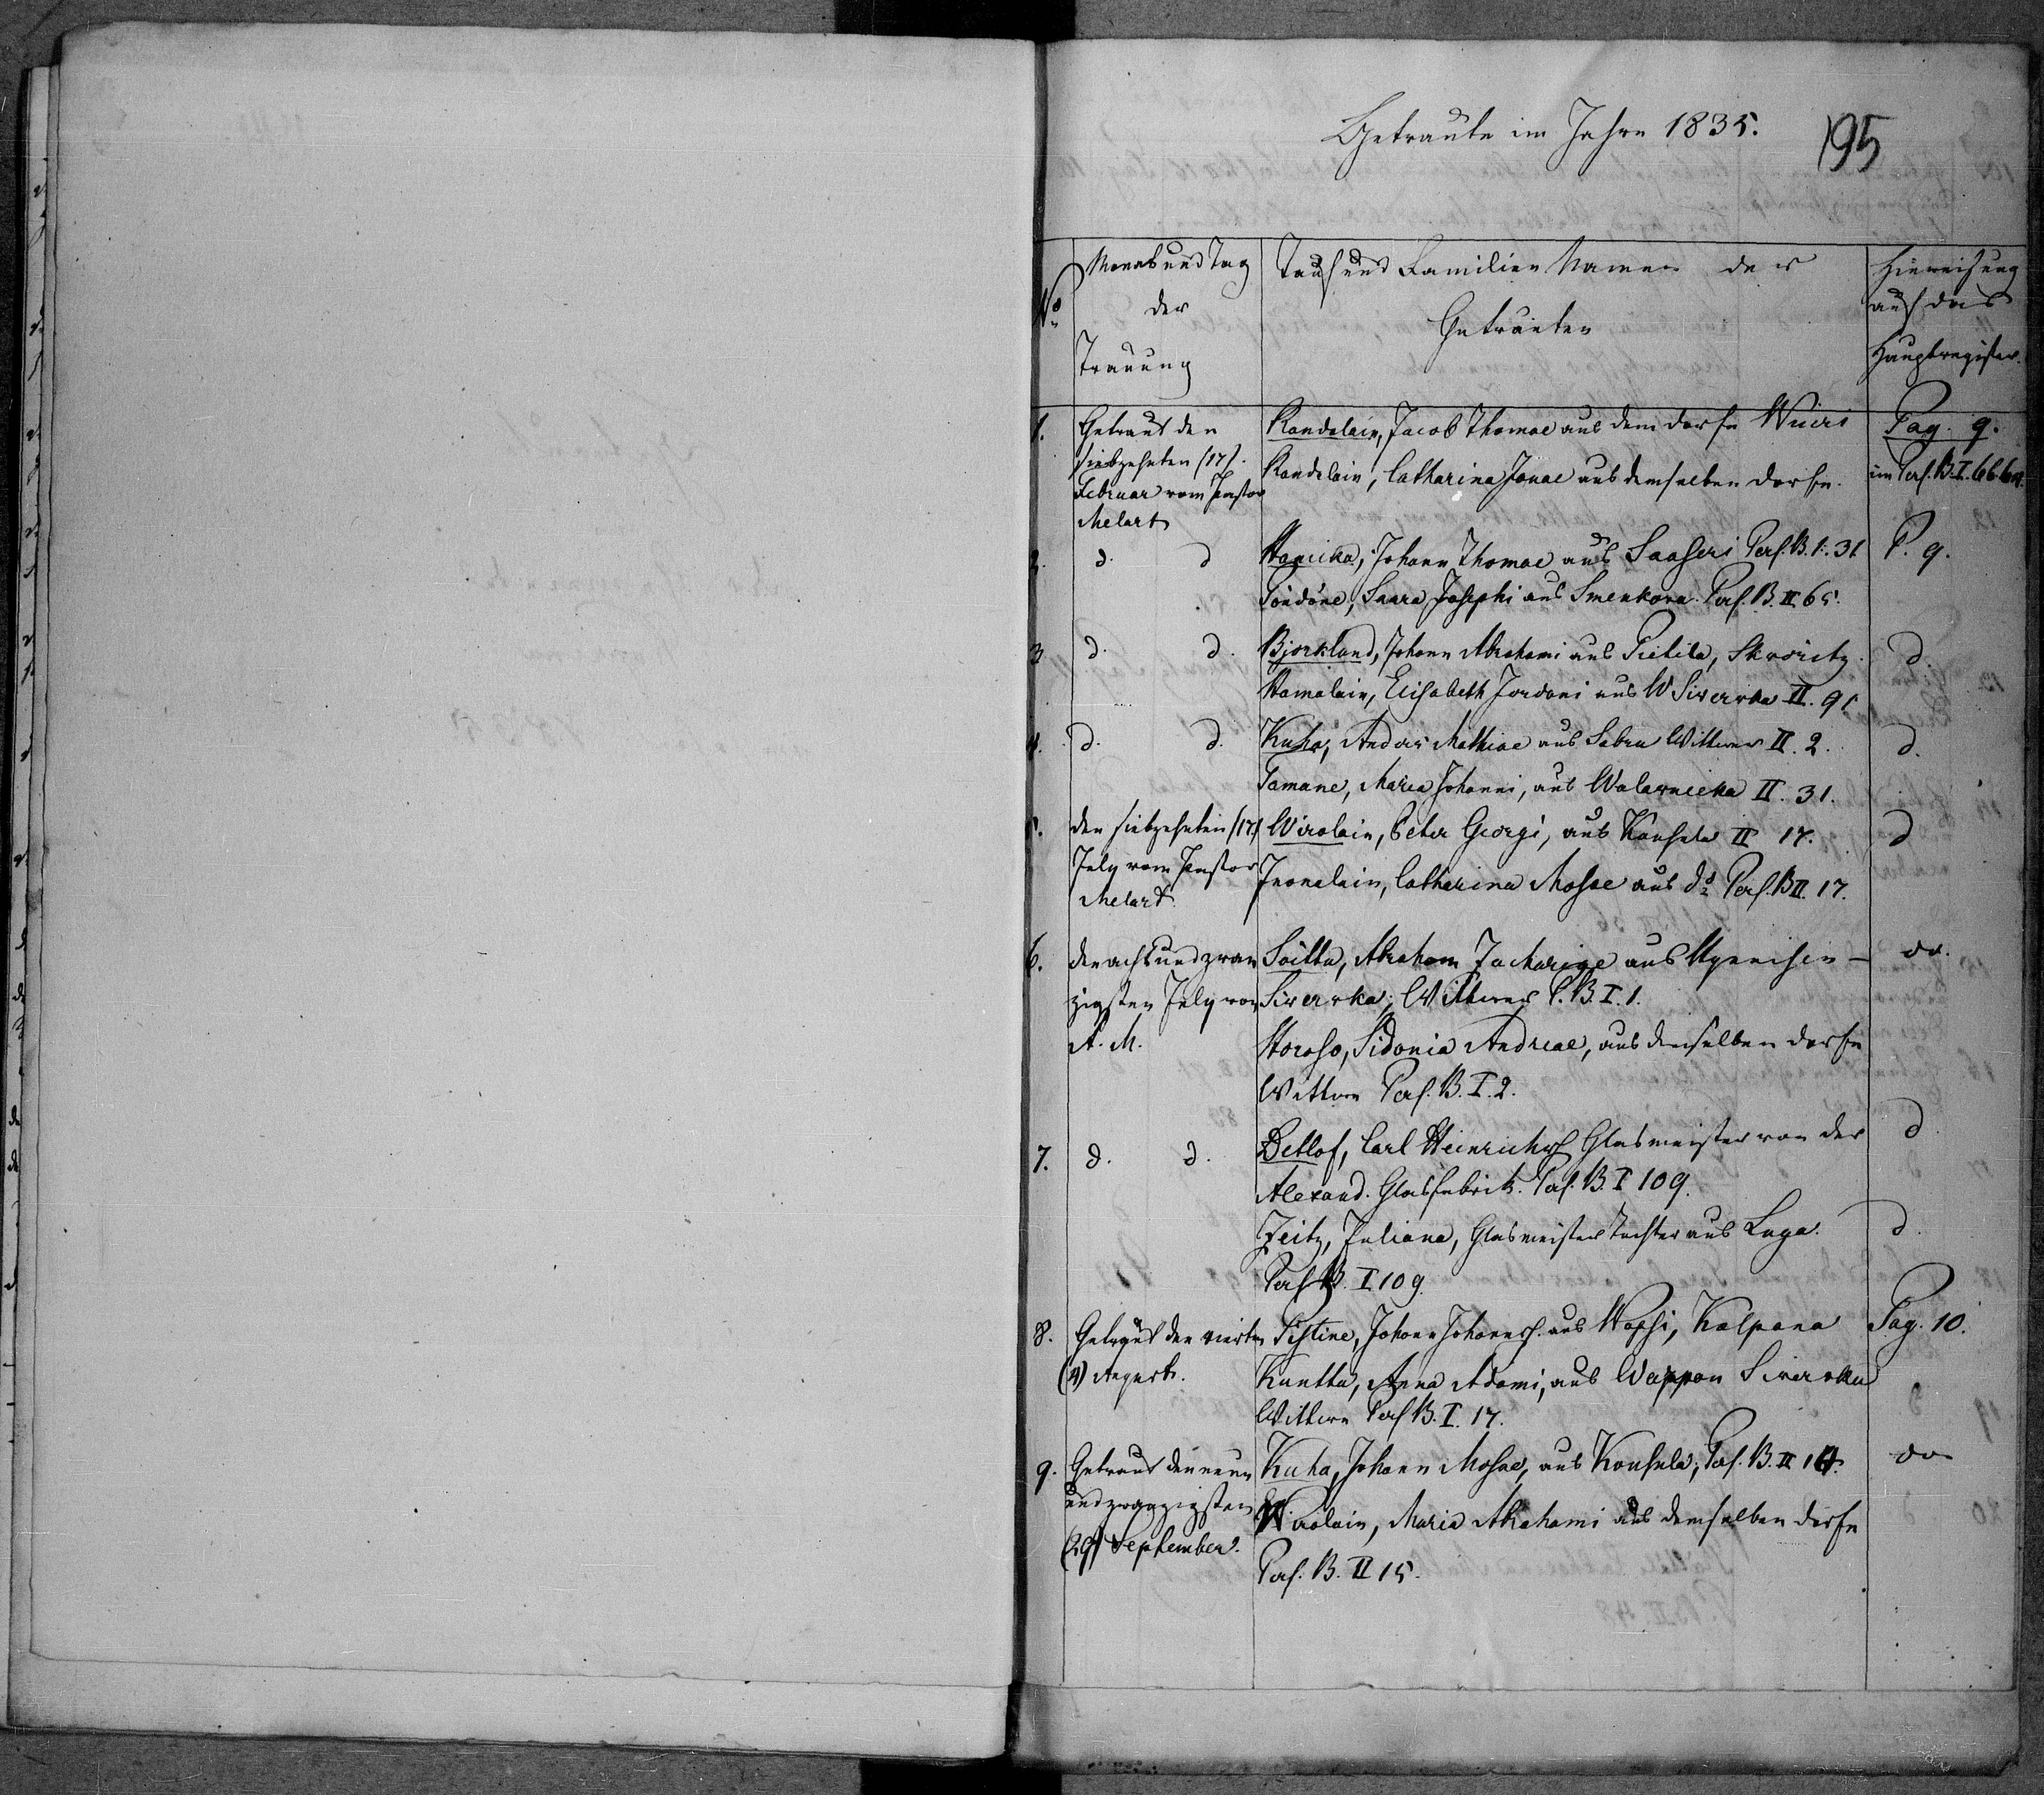 Getraute im Jahre 1835.
195
No
Monat und Tag
der
Trauung
Tauf und Familien Namen der
Getrauten
Hinweisung
auf das
Hauptregister.
1.
Getraut den
siebzehnten (17).
Februar vom Pastor
Melart
Kandolain, Jacob Thomae aus dem Dorfe Wuori
Kandolain, Catharina Jonae aus demselben Dorfe.
Pag. 9.
im Pers. B. I. 66
2.
d. d
Haquika, Johann Thomae aus Saaseri Pers. B. I. 31
Pöndöne, Saara Josephi aus Smenkova Pers. B. II 65.
P. 9.
3
d. d.
Bjorklund, Johann Abrahami aus Pietila, Skworitz.
Hamalain, Elisabeth Jordani aus W Siverska II. 91
d.
4.
d. d.
Kuha, Anders Mathiae aus Sabru Wittwer II. 2.
Tamane, Maria Johanni, aus Walasnicka II. 31.
d.
5.
den siebzehnten (17.)
July vom Pastor
Melart
Wirolain, Peter Georgi, aus Kousula II 17.
Inonalain, Catharina Mosae aus do Pers. B II. 17.
d
6.
den acht und zwan
zigsten July von
A. M.
Soitta, Abraham Zachariae aus Myanisen-
Siverska; Wittwer P. B. I. 1.
Horoso, Sidonia Andreae, aus demselben Dorfe
Wittwe Pers. B. I. 2.
do.
7.
d. d.
Detlof, Carl Heinrichs Glasmeister von der
Alexand. Glasfabrik. Pers. B. I 109.
Zeitz, Juliana, Glasmeisters Tochter aus Luga.
Pers B. I 109
d
d.
8.
Getraut den vierten
(4) August.
Pistine, Johann Johanns. aus Wopsi, Kolpana
Kuntta, Anna Adami, aus Wappon Siverska
Wittwe Pers B. I. 17.
Pag. 10.
9.
Getraut den neun
und zwanzigsten
(29) September.
Kuha, Johann Mosae, aus Kousula; Pers. B. II 14.
Wirolain, Maria Abrahami aus demselben Dorfe
Pers. B. II 15.
do